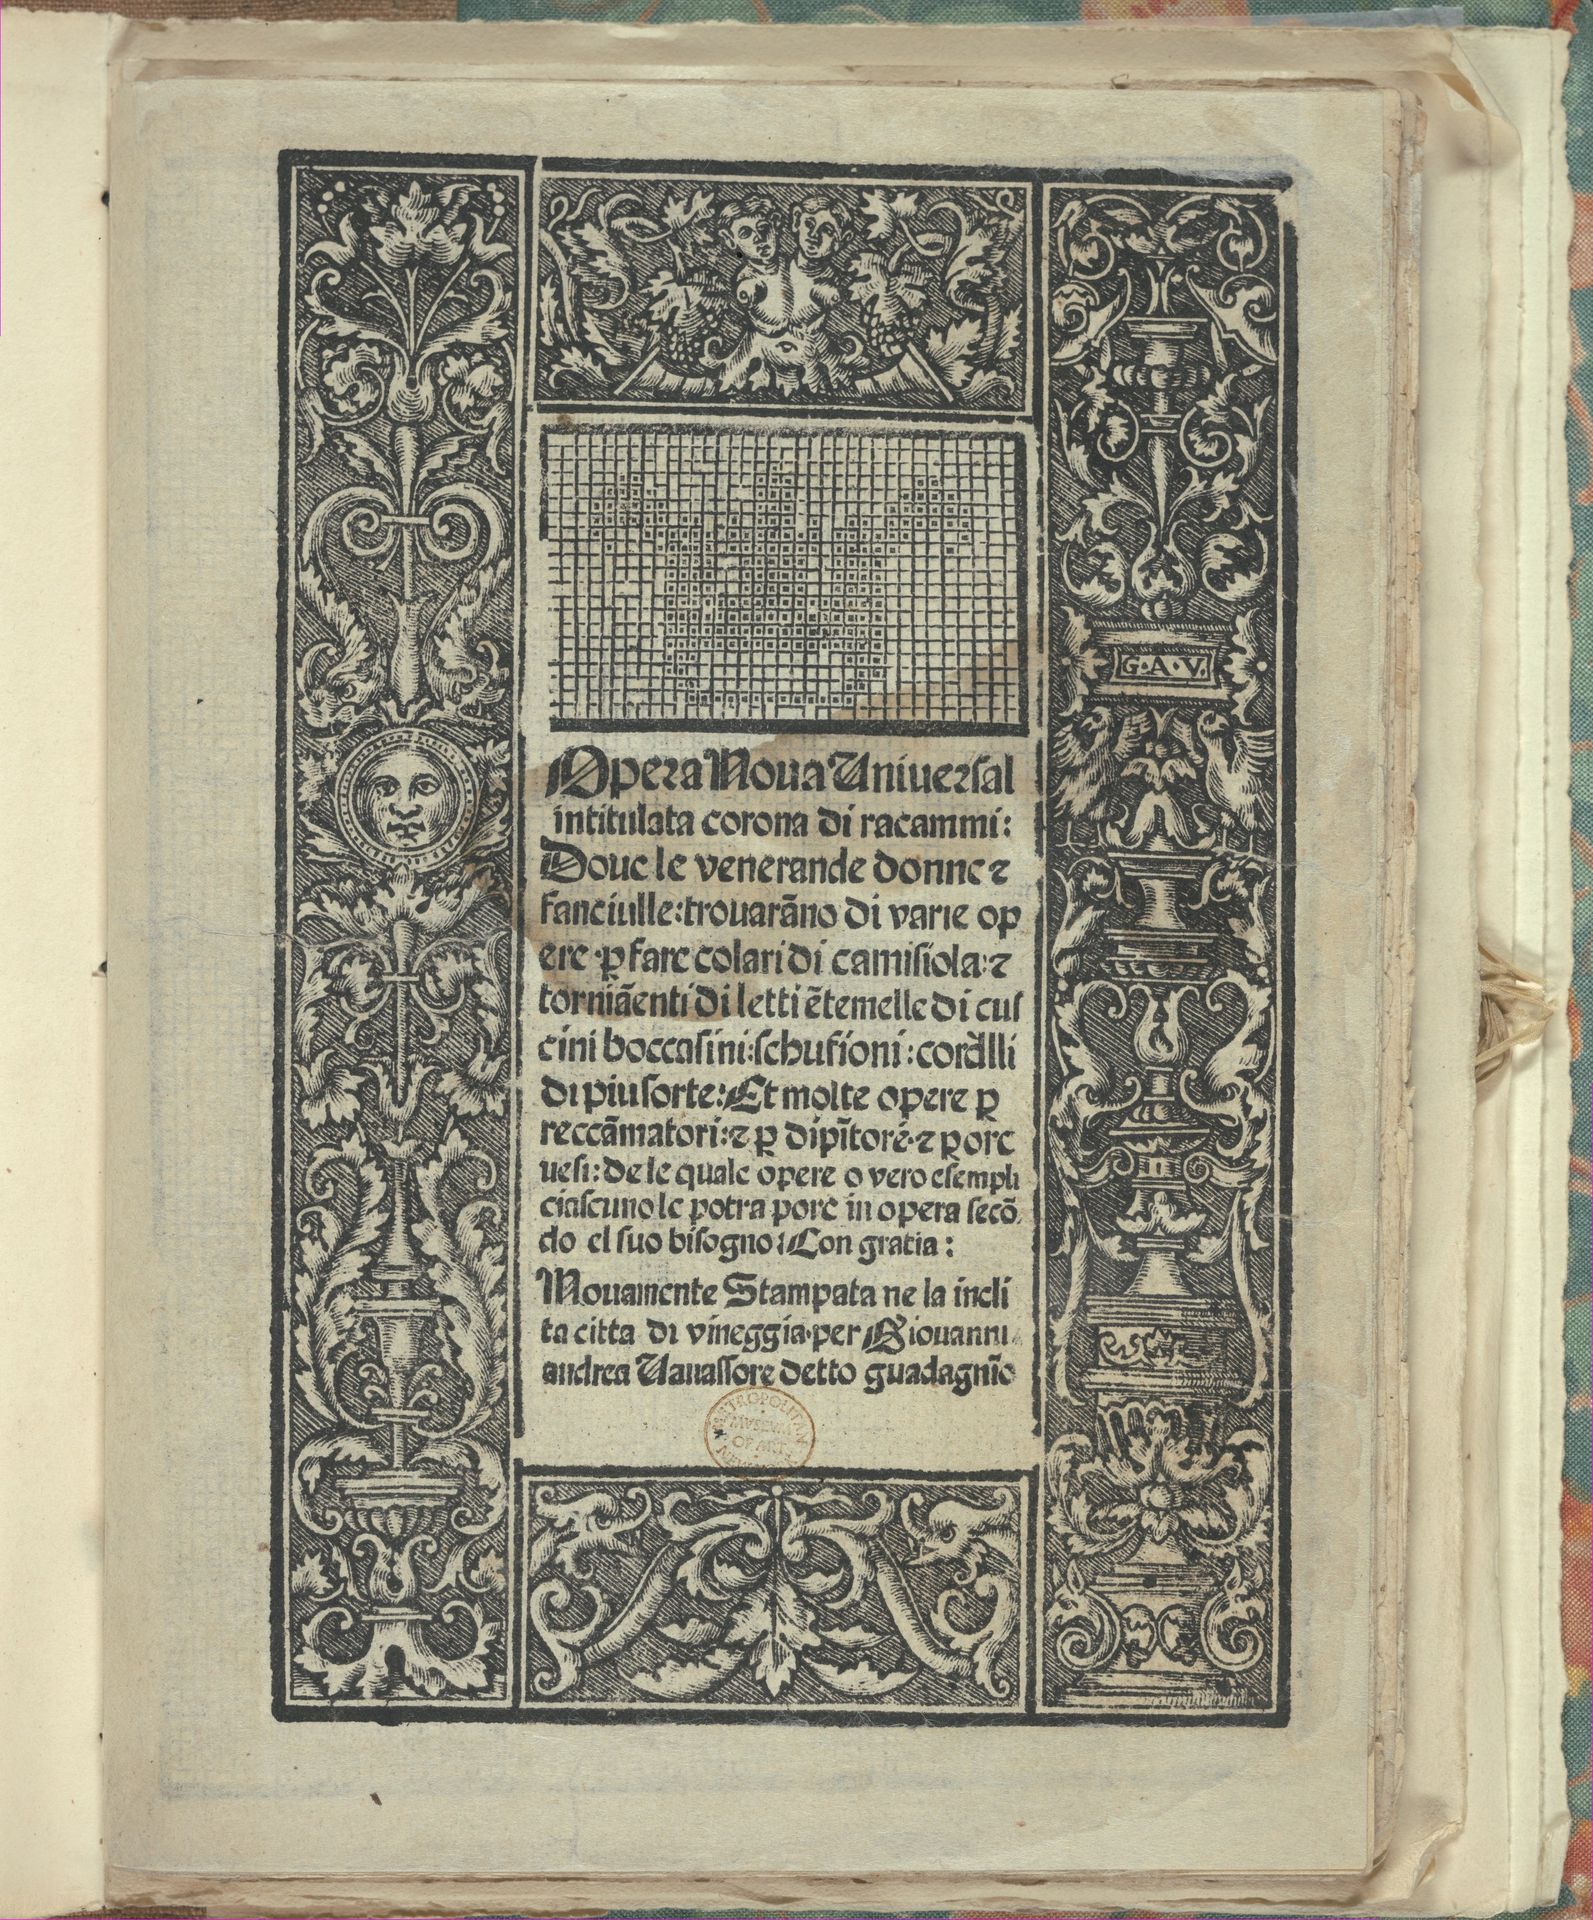 G·A·V.
Opera Noua Uniuersal
intitulata corona di racammi:
Doue le venerande donne ⁊
fanciulle: trouarāno di varie op
ere · ꝑ fare colari di camisiola: ⁊
torniāenti di letti ētemelle di cus
cini boccasini: schufioni: cordlli
di piu sorte: Et molte opere ꝑ
reccāmatori: ⁊ ꝑ dipītore· ⁊ ꝑ ore
uesi: de le quale opere o vero esempli
ciascuno le potra pore in opera secō
do el suo bisogno: Con gratia:
Nouamente Stampata ne la incli
ta citta di vineggia · per Giouanni
andrea Uauassore detto guadagnīo
METROPOLITAN
MVSEVM
OF ART
NEW YORK